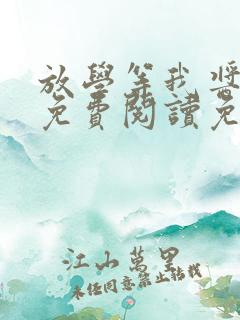 放學等我將
免費閱讀免
江山萬里
未任同意禁止轉載